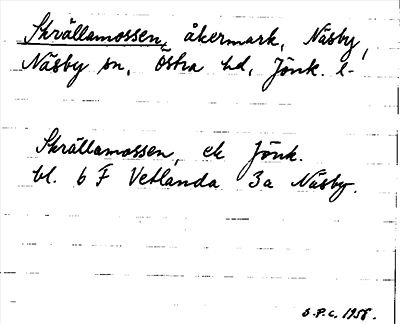 Skrällamossen, åkermark, Näsby,
Näsby sn, Östra hd, Jönk. l.
Skrällamossen, ek Jönk.
bl. 6 F Vetlanda 3a Näsby.
S.P.C. 1958.